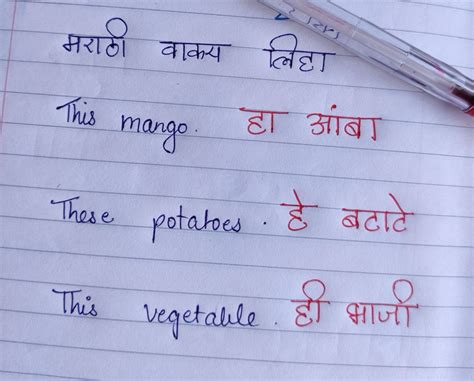 मराठी वाक्य लिहा
This mango. हा आंबा
These potatoes. हे बटाटे
This vegetable. ही भाजी